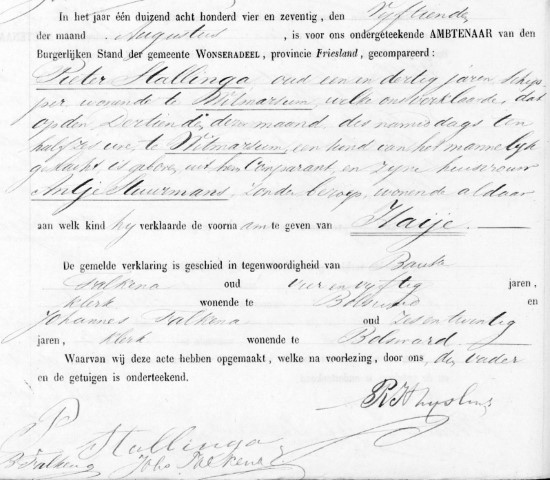 In het jaar één duizend acht honderd vier en zeventig, den Vijftienden
der maand Augustus, is voor ons ondergeteekende AMBTENAAR van den
Burgerlijken Stand der gemeente WONSERADEEL, provincie Friesland, gecompareerd:
Pieter Stallinga oud een en dertig jaren, schip-
per wonende te Witmarsum, welke ons verklaarde, dat
op den Dertiende dezer maand des namiddags ten
half zes ure, te Witmarsum, een kind van het mannelijk
geslacht is geboren uit hem Comparant, en zijne huisvrouw
Antje Stuurmans, zonder beroep, wonende aldaar
aan welk kind hy verklaarde de voornaam te geven van Haije.
De gemelde verklaring is geschied in tegenwoordigheid van Bauke
Falkena oud vier en vijftig jaren,
klerk wonende te Bolsward en
Johannes Falkena oud zes en twintig
jaren, klerk wonende te Bolsward.
Waarvan wij deze acte hebben opgemaakt, welke na voorlezing, door ons, den vader
en de getuigen is onderteekend.
P Stallinga
B Falkena Johs Falkena